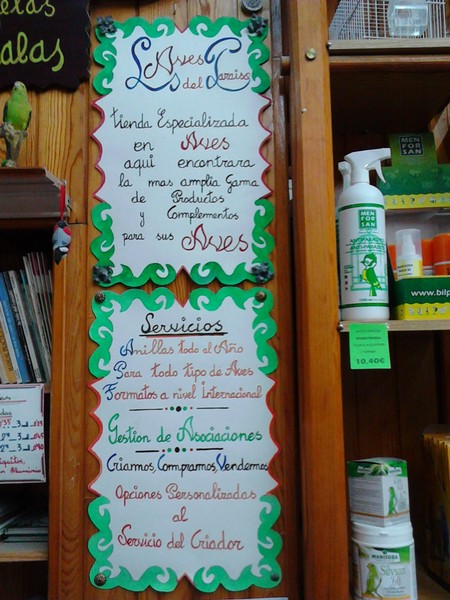 alas
Las Aves
del Paraiso
tienda Especializada
en Aves
aqui encontrara
la mas amplia Gama
de Productos
y Complementos
para sus Aves
Servicios
Anillas todo al Año
Para todo tipo de Aves
Formatos a nivel Internacional
Gestion de Asociaciones
Criamos, Compramos, Vendemos
Opciones Personalizadas
al
Servicio del Criador
MEN
FOR
SAN
MEN
FOR
SAN
www.bilp
10,40€